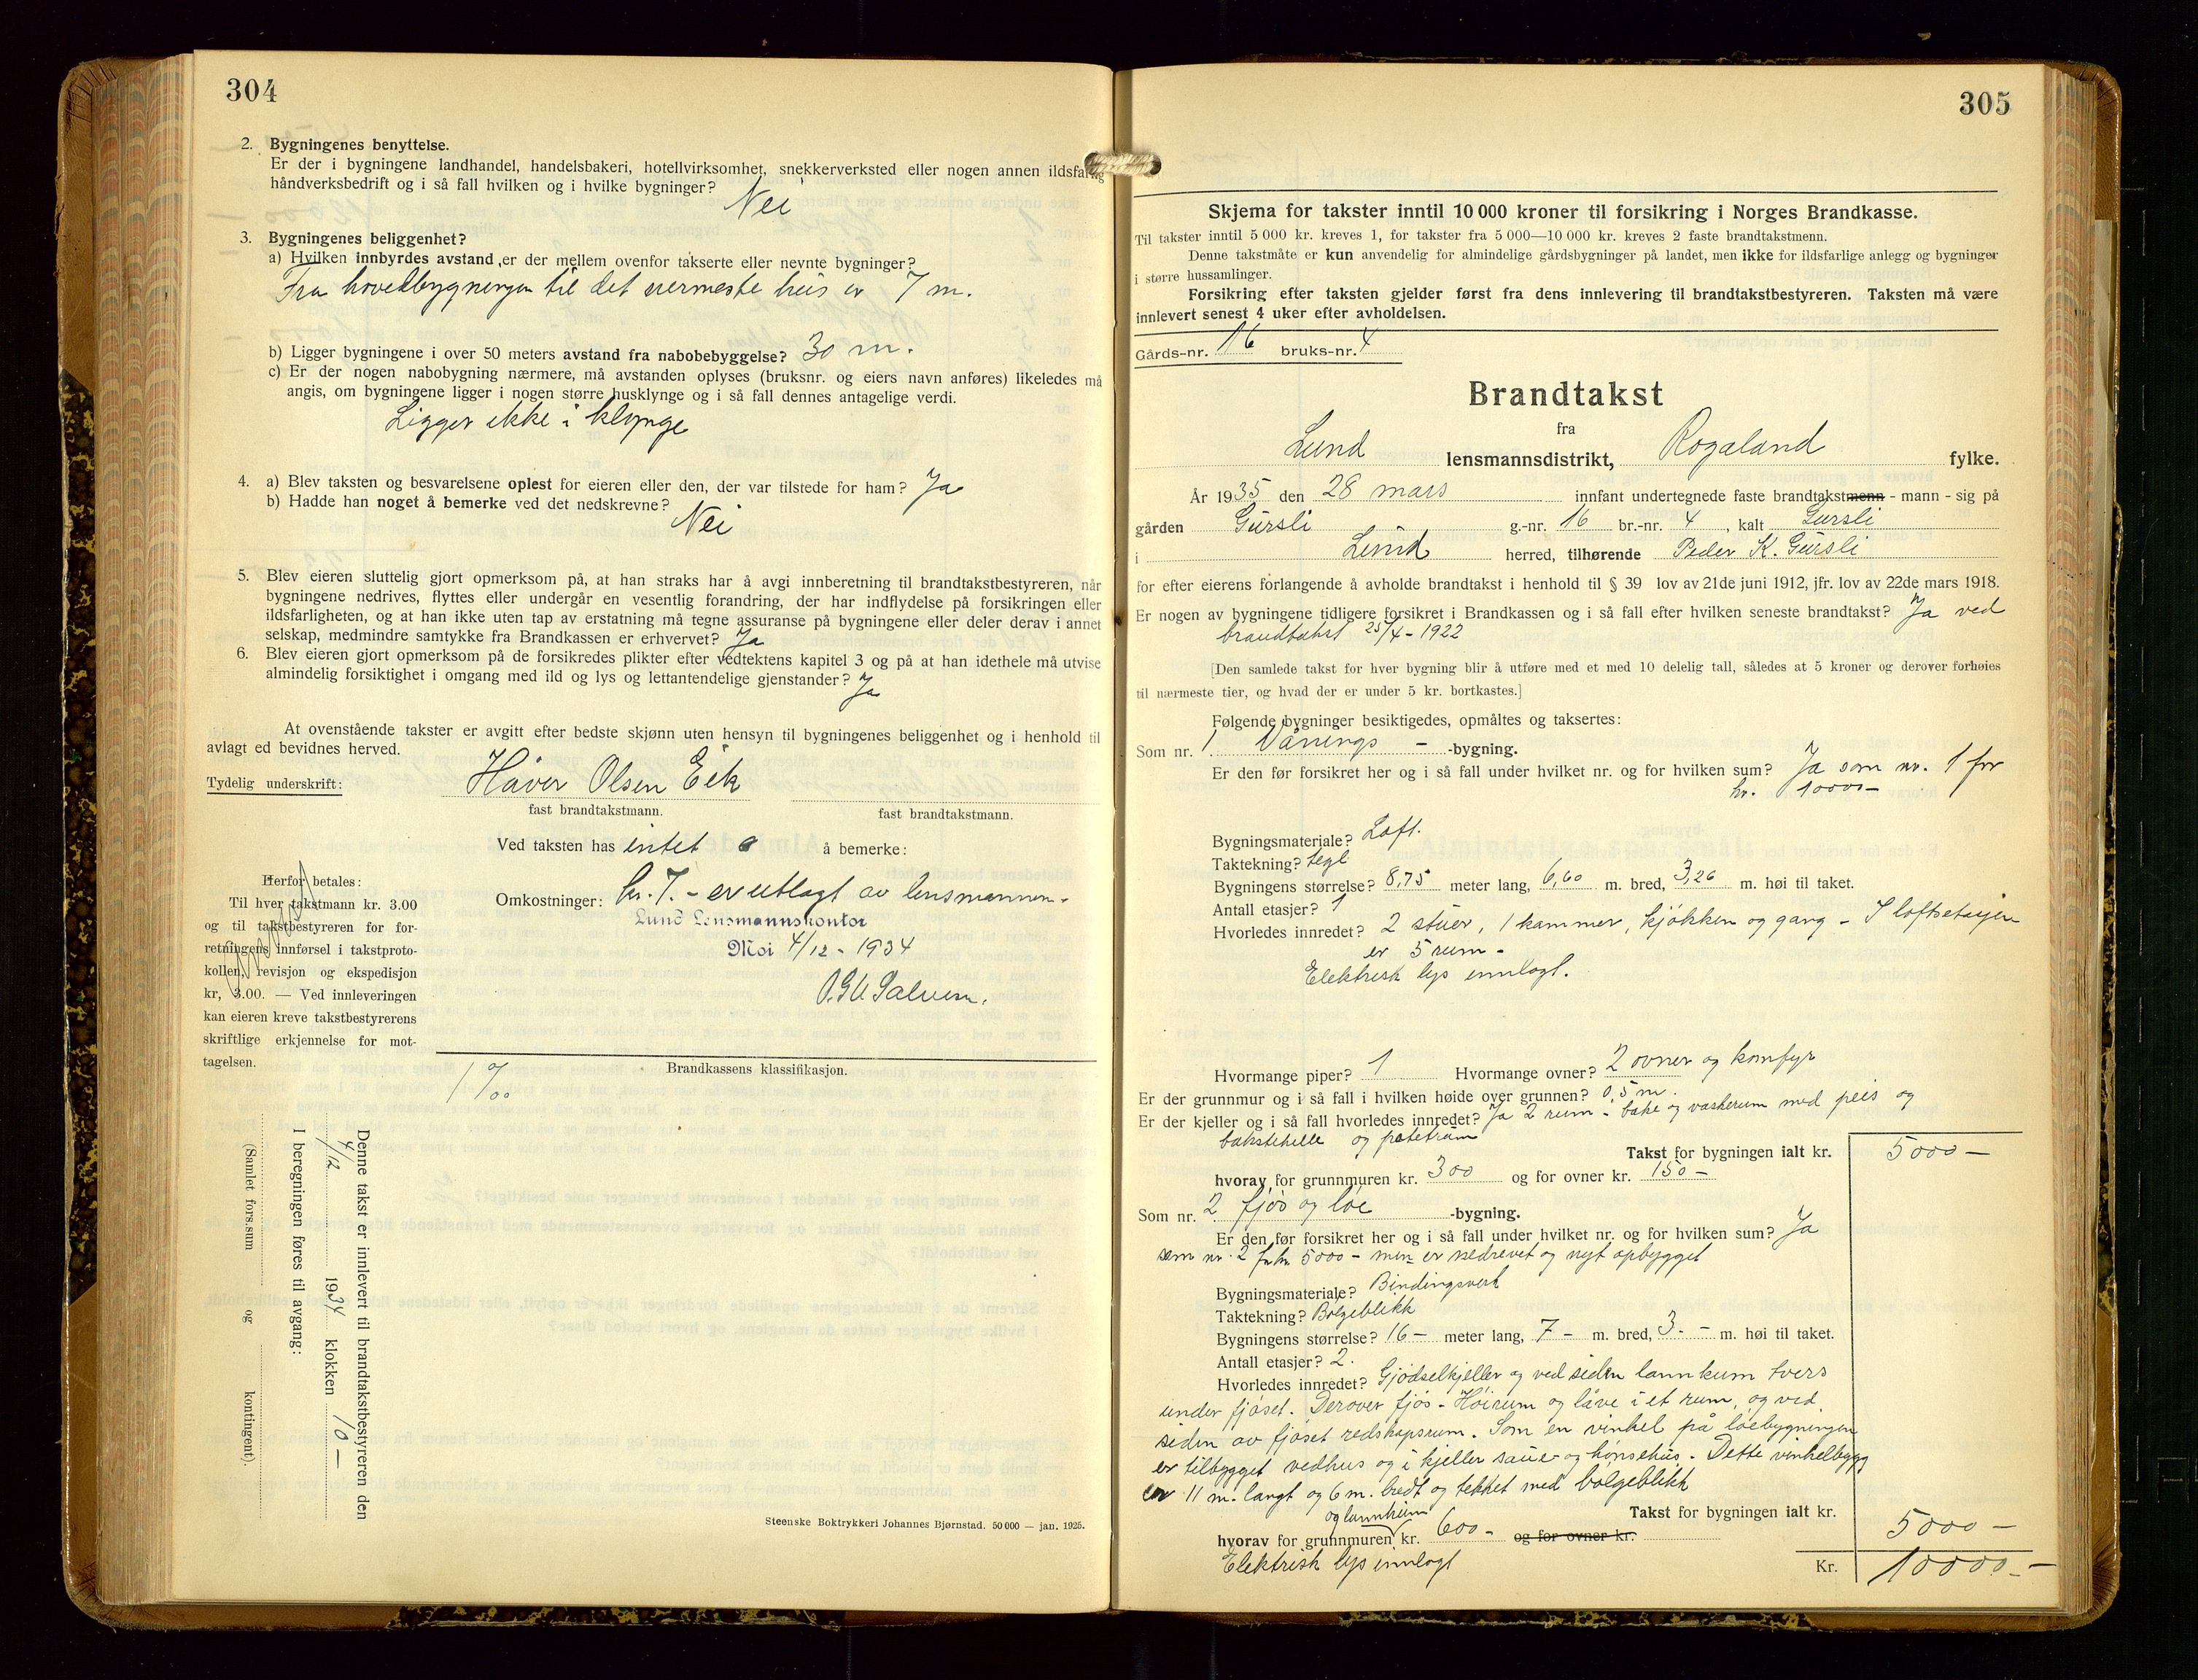 304
2. Bygningenes benyttelse.
Er der i bygningene landhandel, handelsbakeri, hotellvirksomhet, snekkerverksted eller nogen annen ildsfarlig
håndverksbedrift og i så fall hvilken og i hvilke bygninger? Nei
3. Bygningenes beliggenhet?
a) Hvilken innbyrdes avstand er der mellem ovenfor takserte eller nevnte bygninger?
Fra hovedbygningen til det nermeste hus er 7 m.
b) Ligger bygningene i over 50 meters avstand fra nabobebyggelse? 30 m.
c) Er der nogen nabobygning nærmere, må avstanden oplyses (bruksnr. og eiers navn anføres) likeledes må
angis, om bygningene ligger i nogen større husklynge og i så fall dennes antagelige verdi.
Ligger ikke i klynge
4. a) Blev taksten og besvarelsene oplest for eieren eller den, der var tilstede for ham? Ja
b) Hadde han noget å bemerke ved det nedskrevne?
Nei
5. Blev eieren sluttelig gjort opmerksom på, at han straks har å avgi innberetning til brandtakstbestyreren, når
bygningene nedrives, flyttes eller undergår en vesentlig forandring, der har indflydelse på forsikringen eller
ildsfarligheten, og at han ikke uten tap av erstatning må tegne assuranse på bygningene eller deler derav i annet
selskap, medmindre samtykke fra Brandkassen er erhvervet? Ja
6. Blev eieren gjort opmerksom på de forsikredes plikter efter vedtektens kapitel 3 og på at han idethele må utvise
almindelig forsiktighet i omgang med ild og lys og lettantendelige gjenstander? Ja
At ovenstående takster er avgitt efter bedste skjønn uten hensyn til bygningenes beliggenhet og i henhold til
avlagt ed bevidnes herved.
Tydelig underskrift: Håver Olsen Eik
fast brandtakstmann. fast brandtakstmann.
Ved taksten has intet å bemerke:
Omkostninger: kr. 7.- er utlagt av lensmannen.
Lund Lensmannskontor
Moi 4/12 - 1934
Herfor betales:
Til hver takstmann kr. 3.00
og til takstbestyreren for for-
retningens innførsel i takstproto-
kollen, revisjon og ekspedisjon
kr, 3.00. — Ved innleveringen
kan eieren kreve takstbestyrerens
skriftlige erkjennelse for mot-
tagelsen.
Brandkassens klassifikasjon.
1 ‰
Denne takst er innlevert til brandtakstbestyreren den
4/12 1934 klokken 10 —
I beregningen føres til avgang:
(Samlet fors.sum og kontingent).
Steenske Boktrykkeri Johannes Bjørnstad. 50 000 — jan. 1925.
305
Skjema for takster inntil 10 000 kroner til forsikring i Norges Brandkasse.
Til takster inntil 5 000 kr. kreves 1, for takster fra 5 000—10 000 kr. kreves 2 faste brandtakstmenn.
Denne takstmåte er kun anvendelig for almindelige gårdsbygninger på landet, men ikke for ildsfarlige anlegg og bygninger
i større hussamlinger.
Forsikring efter taksten gjelder først fra dens innlevering til brandtakstbestyreren. Taksten må være
innlevert senest 4 uker efter avholdelsen.
Gårds-nr. 16 bruks-nr. 4
Brandtakst
fra
Lund lensmannsdistrikt, Rogaland fylke.
År 1935 den 28 mars innfant undertegnede faste brandtakstmenn - mann - sig på
gården Gursli g.-nr. 16 br.-nr. 4, kalt Gursli
i Lund herred, tilhørende Peder K. Gursli
for efter eierens forlangende å avholde brandtakst i henhold til § 39 lov av 21de juni 1912, jfr. lov av 22de mars 1918.
Er nogen av bygningene tidligere forsikret i Brandkassen og i så fall efter hvilken seneste brandtakst? Ja ved
brandtakst 25/4 - 1922
[Den samlede takst for hver bygning blir å utføre med et med 10 delelig tall, således at 5 kroner og derover forhøies
til nærmeste tier, og hvad der er under 5 kr. bortkastes.]
Følgende bygninger besiktigedes, opmåltes og taksertes:
Som nr. 1 Vånings - -bygning.
Er den før forsikret her og i så fall under hvilket nr. og for hvilken sum? Ja som nr. 1 for
kr. 10000 —
Bygningsmateriale? Laft.
Taktekning? tegl
Bygningens størrelse? 8,75 meter lang, 6,60 m. bred, 3,26 m. høi til taket.
Antall etasjer? 1
Hvorledes innredet? 2 stuer, 1 kammer, kjøkken og gang - I loftsetasjen
er 5 rum -
Elektrisk lys innlagt.
Hvormange piper? 1 Hvormange ovner? 2 ovner og komfyr
Er der grunnmur og i så fall i hvilken høide over grunnen? 0,5 m.
Er der kjeller og i så fall hvorledes innredet? Ja 2 rum - bake og vaskerum med peis og
bakstehelle og potetrum
Takst for bygningen ialt kr. 5000 —
hvorav for grunnmuren kr. 300 og for ovner kr. 150 —
Som nr. 2 fjøs og løe -bygning.
Er den før forsikret her og i så fall under hvilket nr. og for hvilken sum? Ja
som nr. 2 for kr. 5000 - men er nedrevet og nyt opbygget
Bygningsmateriale? Bindingsverk
Taktekning? Bølgeblikk
Bygningens størrelse? 16 — meter lang, 7 — m. bred, 3. — m. høi til taket.
Antall etasjer? 2.
Hvorledes innredet? Gjødselkjeller og ved siden lannkum tvers
under fjøset. Derover fjøs - Høirum og låve i et rum, og ved
siden av fjøset redskapsrum. Som en vinkel på løebygningen
er tilbygget vedhus og i kjeller saue- og hønsehus. Dette vinkelbygg
er 11 m. langt og 6 m. bredt og tekket med bølgeblikk
Takst for bygningen ialt kr. 5000 —
og lannkum
hvorav for grunnmuren kr. 600 - og for ovner kr.
Elektrisk lys innlagt
Kr. 10000 —